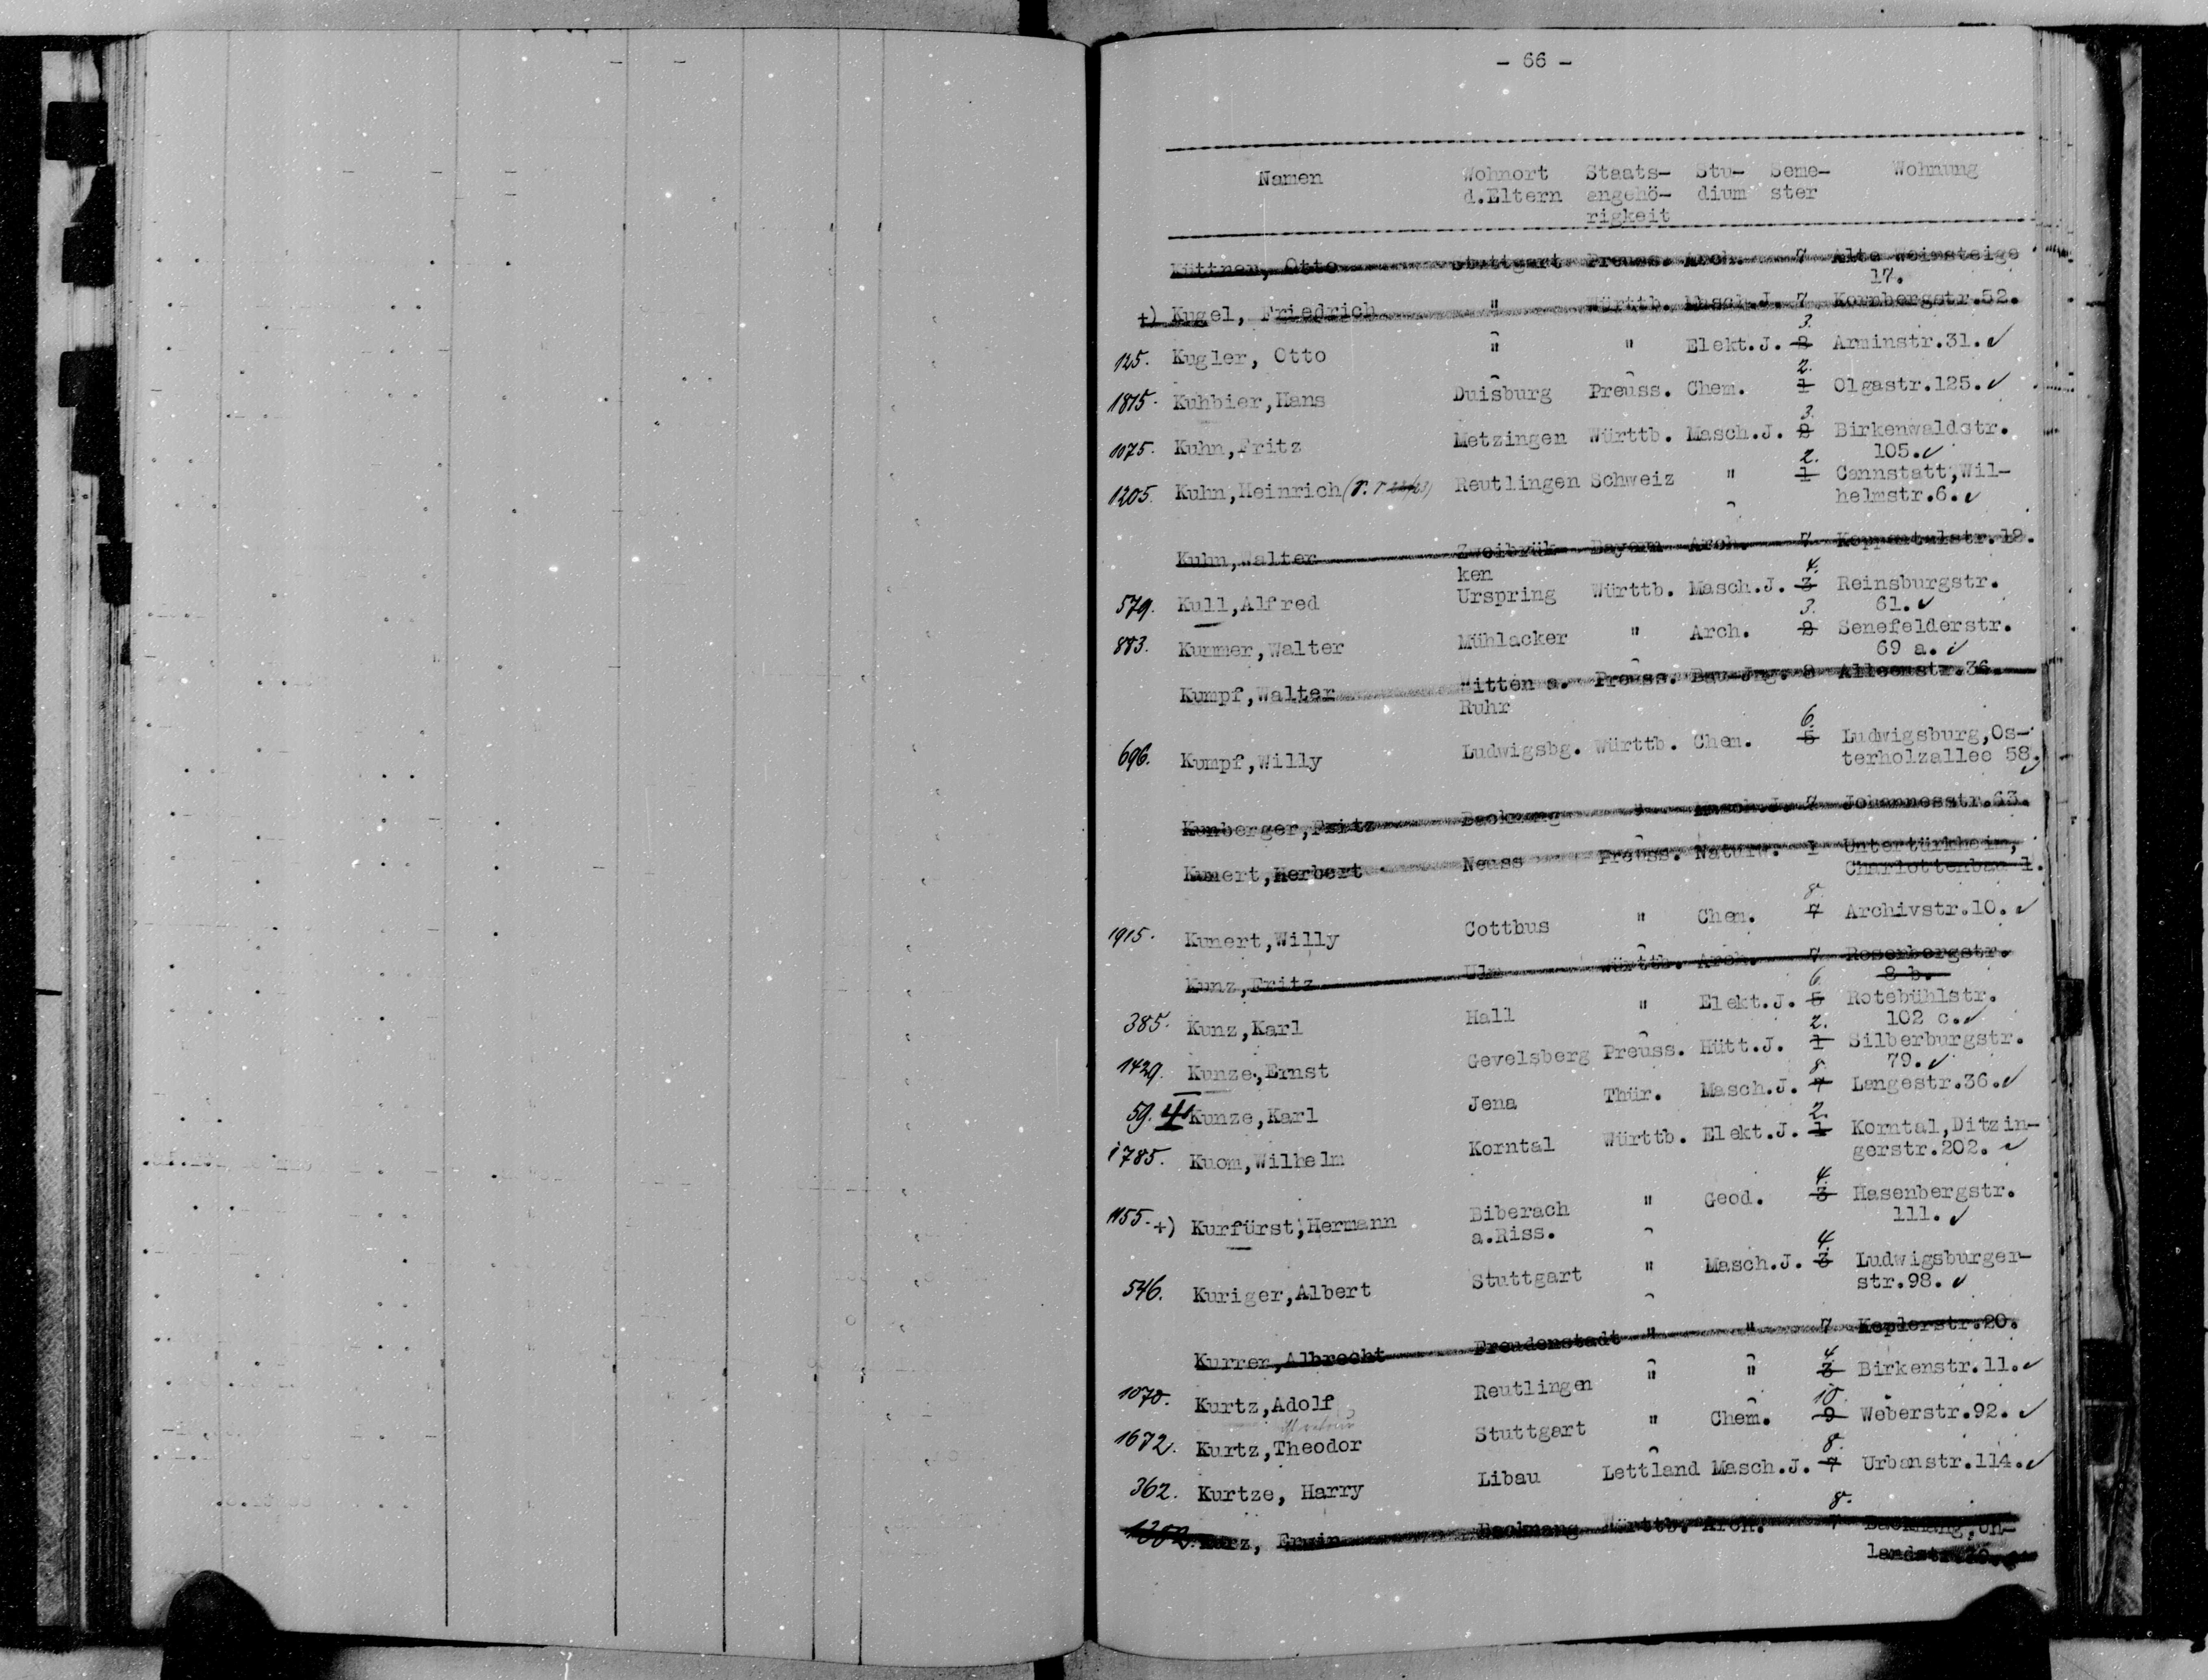 - 66 -
Namen Wohnort Staats- Stu- Seme- Wohnung
d.Eltern angehö- dium ster
rigkeit
Küttner, Otto Stuttgart Preuss. Arch. 7 Alte Weinsteige
17.
+) Kugel, Friedrich " Württb. Masch.J. 7 Kornbergstr.52.
125. Kugler, Otto " " Elekt.J. 2 3. Arminstr.31. ✓
1815. Kuhbier,Hans Duisburg Preuss. Chem. 1 2. Olgastr.125. ✓
1075. Kuhn,Fritz Metzingen Württb. Masch.J. 2 3. Birkenwaldstr.
105. ✓
1205. Kuhn,Heinrich Reutlingen Schweiz " 1 2. Cannstatt,Wil-
helmstr.6. ✓
Kuhn,Walter Zweibrük- Bayern Arch. 7
ken
579. Kull,Alfred Urspring Württb. Masch.J. 3 4. Reinsburgstr.
61. ✓
883. Kummer,Walter Mühlacker " Arch. 2 3. Senefelderstr.
69 a. ✓
Kumpf,Walter Witten a. Preuss. Bau-Jng. 8 Alleenstr.36.
Ruhr
696. Kumpf,Willy Ludwigsbg. Württb. Chem. 5 6. Ludwigsburg,Os-
terholzallee 58. ✓
Kunberger,Fritz Backnang " Masch.J. 7 Johannesstr.63.
Kunert,Herbert Neuss Preuss. Naturw. 1 Untertürkheim,
1.
1915. Kunert,Willy Cottbus " Chem. 7 8. Archivstr.10. ✓
Kunz,Fritz Ulm Württb. Arch. 7 Rosenbergstr.
8 b.
385. Kunz,Karl Hall " Elekt.J. 5 6. Rotebühlstr.
102 c. ✓
1429. Kunze,Ernst Gevelsberg Preuss. Hütt.J. 1 2. Silberburgstr.
79. ✓
59. 4 Kunze,Karl Jena Thür. Masch.J. 7 8. Langestr.36. ✓
1785. Kuom,Wilhelm Korntal Württb. Elekt.J. 1 2. Korntal,Ditzin-
gerstr.202. ✓
1155. +) Kurfürst,Hermann Biberach " Geod. 3 4. Hasenbergstr.
a.Riss. 111. ✓
546. Kuriger,Albert Stuttgart " Masch.J. 3 4. Ludwigsburger-
str.98. ✓
Kurrer,Albrecht Freudenstadt " " 7 Keplerstr.20.
1070. Kurtz,Adolf Reutlingen " " 3 4. Birkenstr.11. ✓
1672. Kurtz,Theodor Stuttgart " Chem. 9 10. Weberstr.92. ✓
362. Kurtze, Harry Libau Lettland Masch.J. 7 8. Urbanstr.114. ✓
Kurz, Erwin Backnang Württb. Arch. 7 8. Backnang,Uh-
landstr.